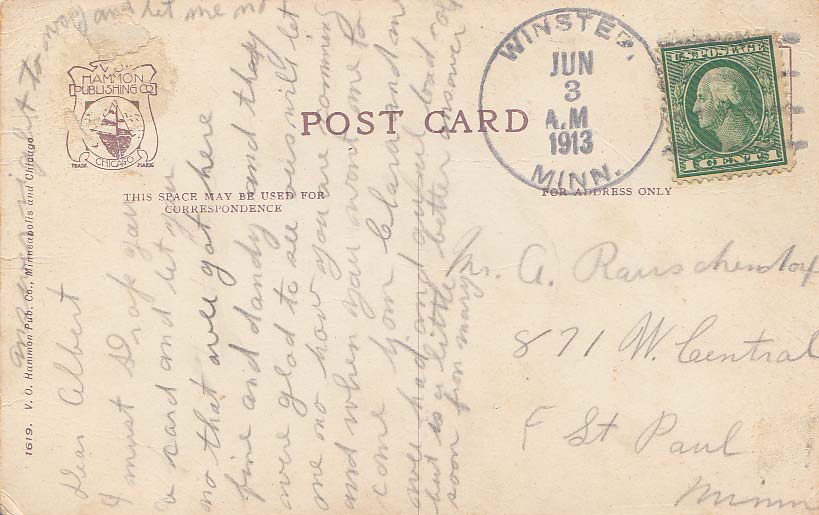 POST CARD
THIS SPACE MAY BE USED FOR
CORRESPONDENCE
FOR ADDRESS ONLY
V.O.
HAMMON
PUBLISHING CO
CHICAGO
TRADE MARK
1619. V. O. Hammon Pub. Co., Minneapolis and Chicago
WINSTED,
JUN
3
A.M
1913
MINN.
U.S. POSTAGE
1 CENTS 1
Dear Albert
I must drop you
a card and let you
no that we got here
fine and dandy and they
were glad to see us will let
me no how you are comming
and when you wont me to
come your Clara and
we had and load of
but is a little better answer
soon from mary
to away and let me no
Mr. A. Rauschendorf
871 W. Central
F St Paul
Minn